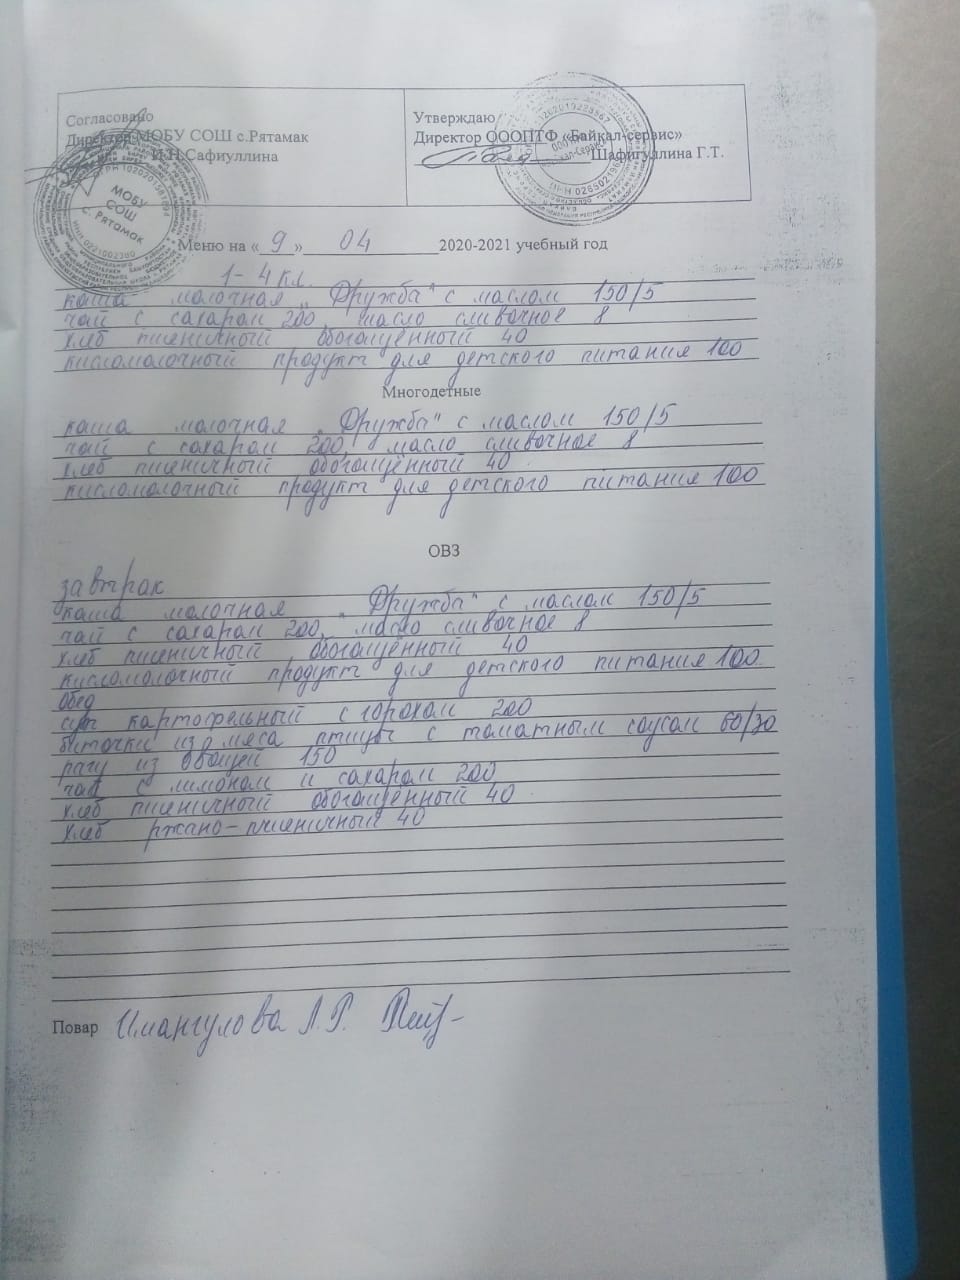 Согласовано
Директор МОБУ СОШ с.Рятамак
И.Н.Сафиуллина
Утверждаю
Директор ОООПТФ «Байкал-сервис»
Шафигуллина Г.Т.
МОБУ
СОШ
с. Рятамак
Меню на « 9 » 04 2020-2021 учебный год
1-4 кл.
каша молочная „Дружба" с маслом 150/5
чай с сахаром 200, масло сливочное 8
хлеб пшеничный обогащённый 40
кисломолочный продукт для детского питания 100
Многодетные
каша молочная „Дружба" с маслом 150/5
чай с сахаром 200, масло сливочное 8
хлеб пшеничный обогащённый 40
кисломолочный продукт для детского питания 100
ОВЗ
завтрак
каша молочная „Дружба" с маслом 150/5
чай с сахаром 200, масло сливочное 8
хлеб пшеничный обогащённый 40
кисломолочный продукт для детского питания 100
обед
суп картофельный с горохом 200
биточки из мяса птицы с томатным соусом 60/30
рагу из овощей 150
чай с лимоном и сахаром 200
хлеб пшеничный обогащённый 40
хлеб ржано-пшеничный 40
Повар Имангулова Л.Р.